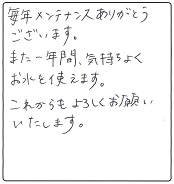 毎年メンテナンスありがとう
ございます。
また一年間、気持ちよく
お水を使えます。
これからもよろしくお願い
いたします。